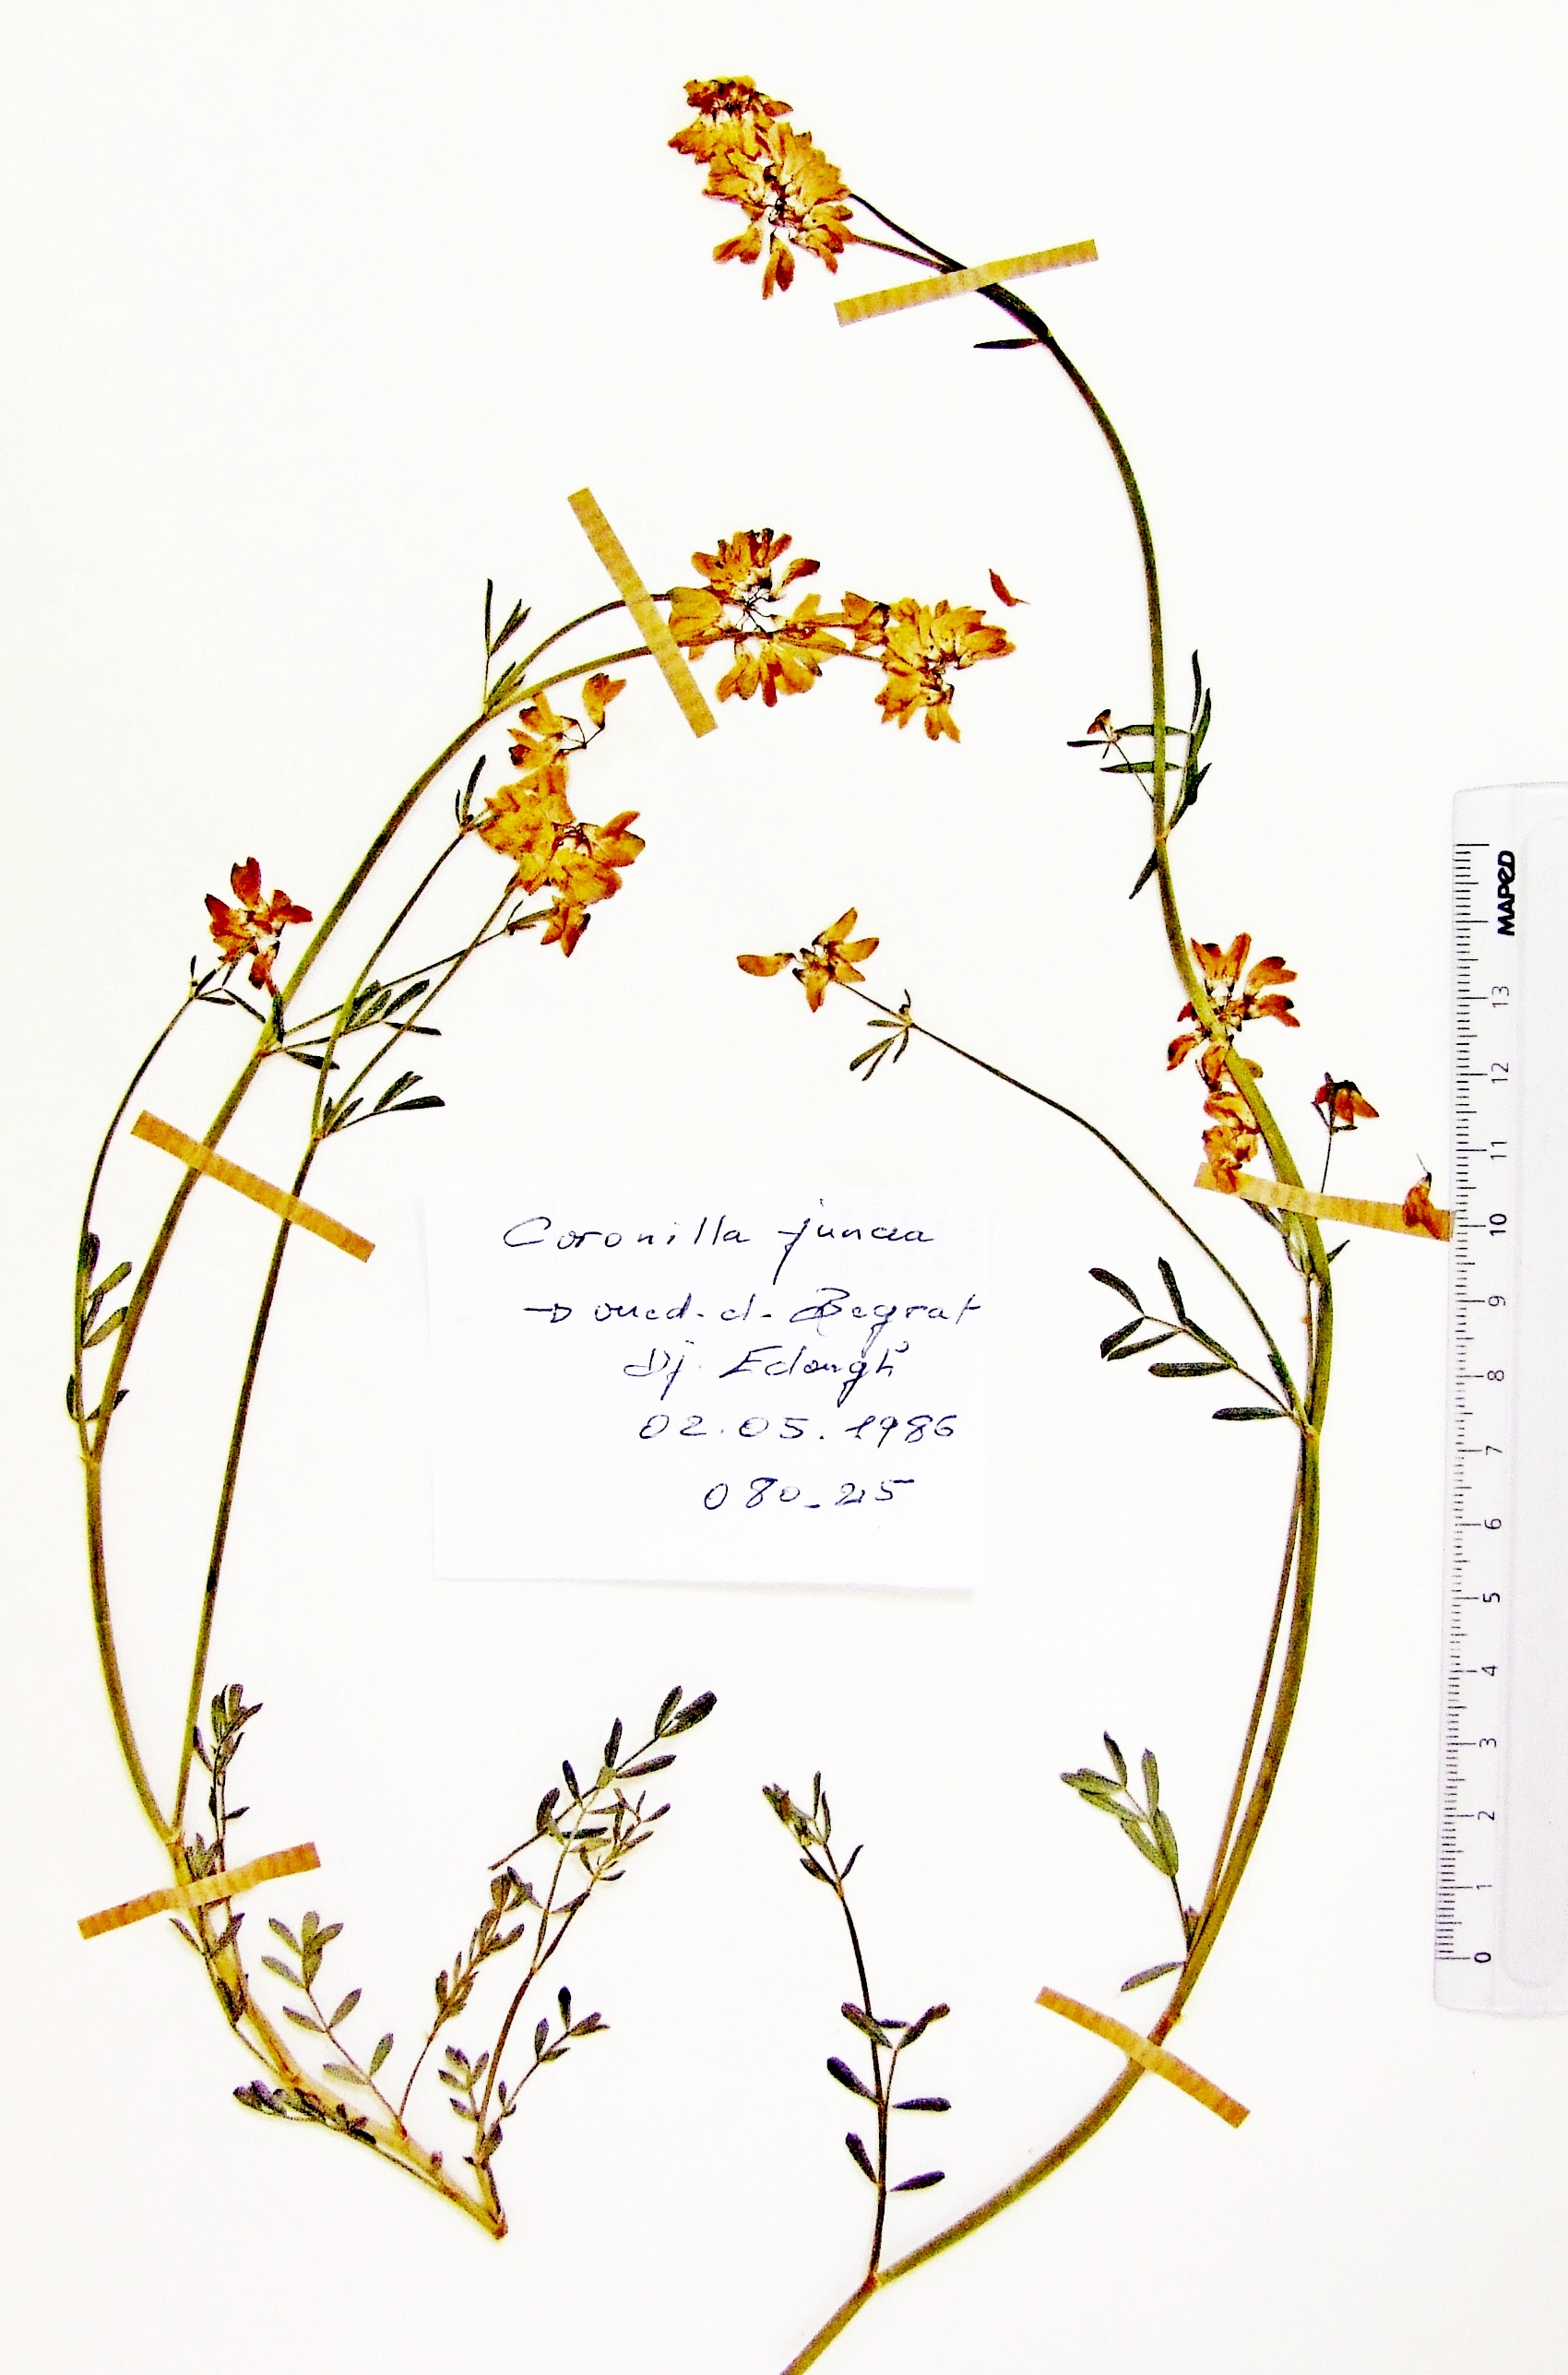 Coronilla juncea
→ oued. el. Begrat
Dj. Edough
02.05.1986
080_215
MAPED
13
12
11
10
9
8
7
6
5
4
3
2
1
0